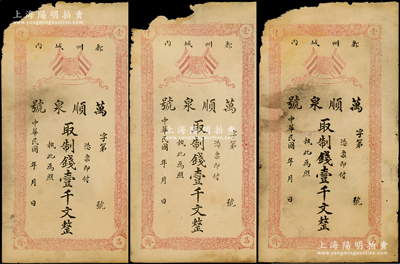 上海陽明拍賣
www.yangmingauction.com
內城州
號泉順萬
字第 號
憑票即付
取制錢壹千文整
執此為照
中華民國 年 月 日
內城州
號泉順萬
字第 號
憑票即付
取制錢壹千文整
執此為照
中華民國 年 月 日
內城州
號泉順萬
字第 號
憑票即付
取制錢壹千文整
執此為照
中華民國 年 月 日